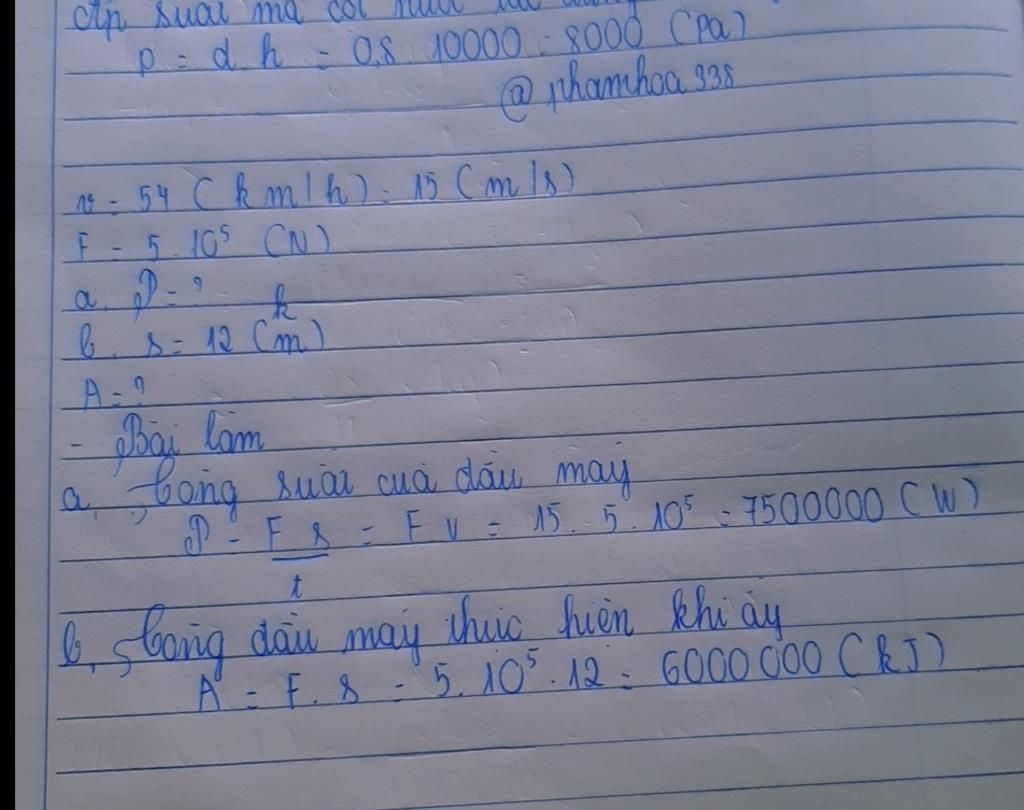 suất mà cột
p = d h = 0,8 10000 = 8000 (Pa)
@phamhoa338
v = 54 (km/h) = 15 (m/s)
F = 5.10⁵ (N)
a, P = ?
k
b, s = 12 (m)
A = ?
- Bài làm
a, Công suất của đầu máy
P = F s = F v = 15. 5. 10⁵ = 7500000 (W)
t
b, Công đầu máy thực hiện khi ấy
A = F. s = 5. 10⁵. 12 = 6000 000 (kJ)